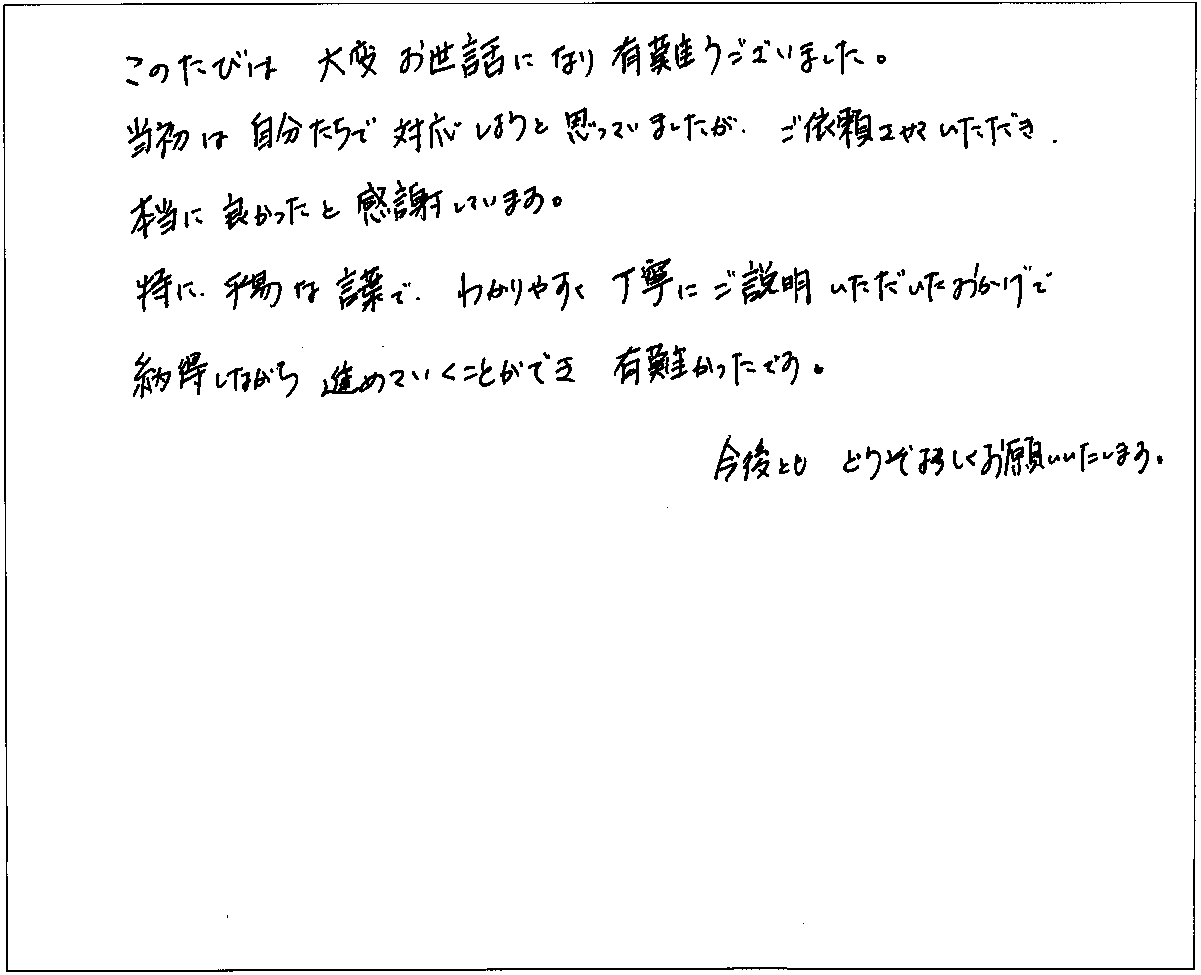 このたびは 大変 お世話になり 有難うございました。
当初は 自分たちで 対応しようと 思っていましたが、ご依頼させていただき、
本当に 良かったと 感謝しています。
特に、平易な言葉で、わかりやすく 丁寧にご説明いただいたおかげで
納得しながら 進めていくことができ 有難かったです。
今後とも どうぞよろしくお願いいたします。